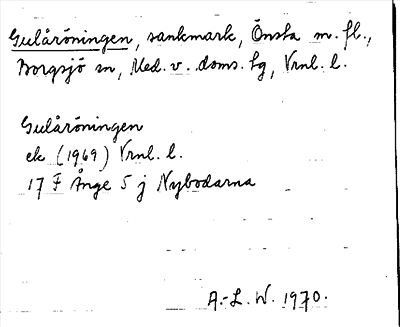 Gulåröningen, sankmark, Önsta m. fl.,
Borgsjö sn, Med. v. doms. lg, Vrnl. l.
Gulåröningen
ek (1969) Vrnl. l.
17 F Ånge 5 j Nybodarna
A.-L. W. 1970.